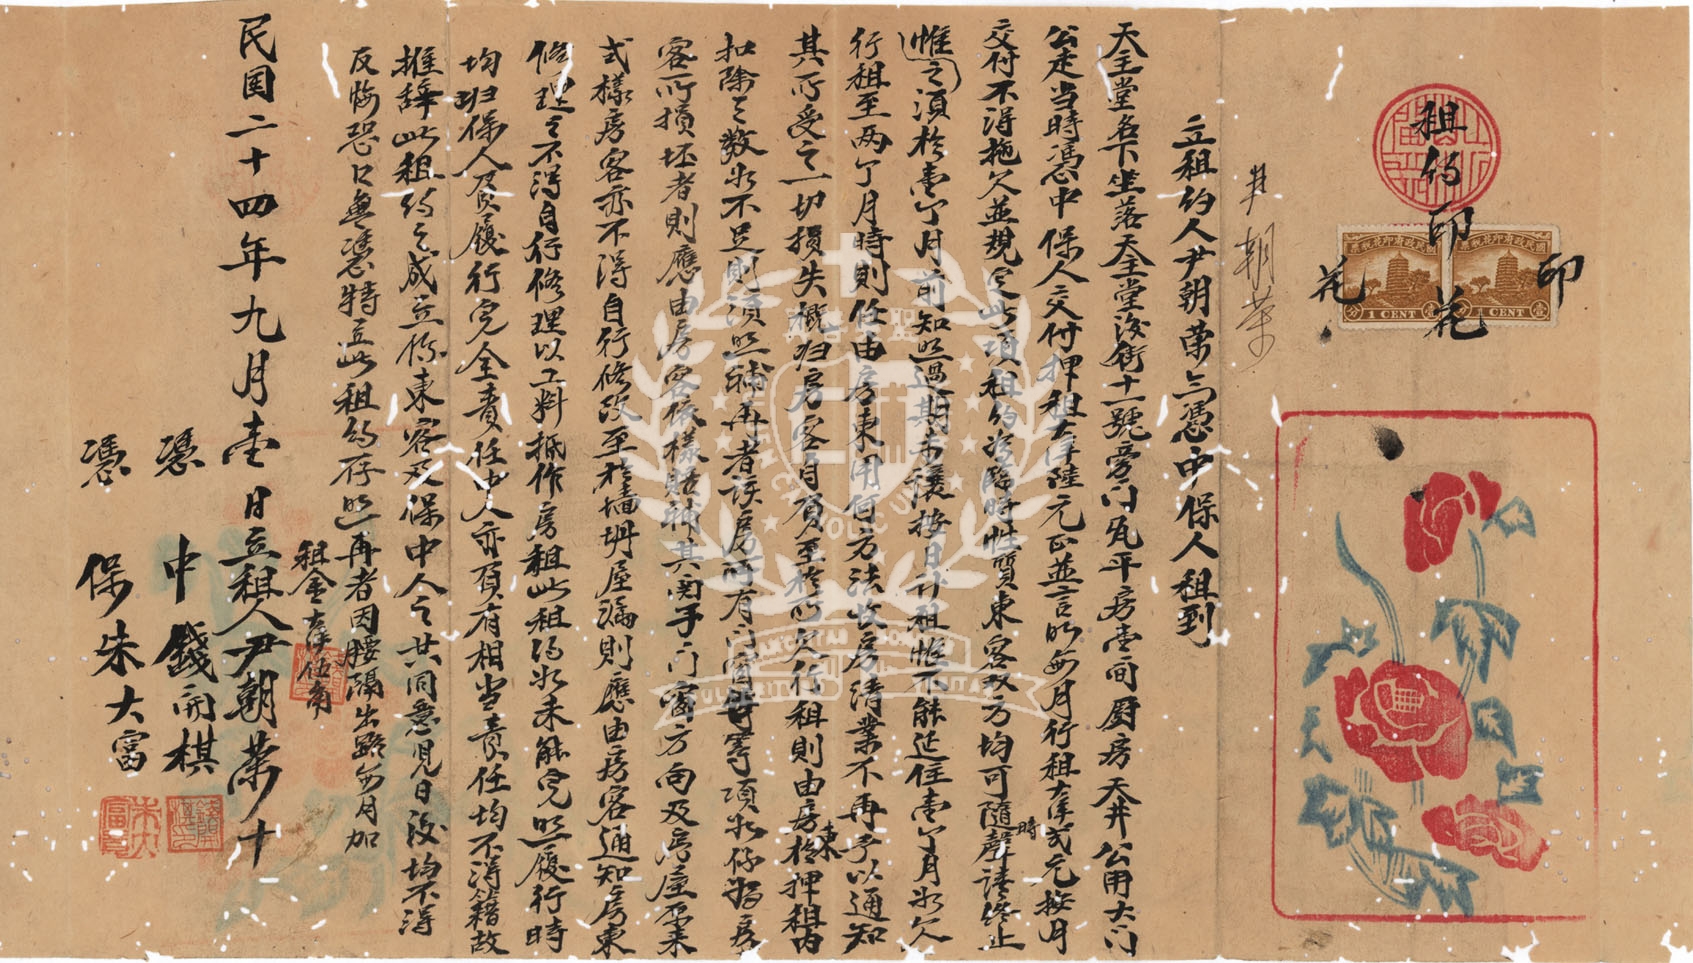 租約
印花
印
花
國民政府印花稅票
1 CENT
壹分
國民政府印花稅票
1 CENT
壹分
尹朝荣
立租约人尹朝荣今憑中保人租到
天主堂名下坐落天主堂後街十一號旁门瓦平房壹间厨房天井公用大门
公走当時憑中保人交付押租大洋陸元正並言明每月行租大洋弍元按月
交付不得拖欠並規定此項租约为臨時性質東客双方均可隨時聲請终止
惟之須於壹个月前知照過期未讓按日計租惟不能延住壹个月如欠
行租至两个月時則任由房東用何方法收房清業不再予以通知
其所受之一切損失概归房客自負至於所欠行租則由房東於押租内
扣除之数如不足則須照補再者该房所有门窗等等項如係為房
客所損坯者則應由房客依樣賠補其両手门窗方向及房屋原来
式樣房客亦不得自行修改至於墙坍屋漏則應由房客通知房東
修理之不得自行修理以工料抵作房租此租约如未能完照履行時
均归保人負履行完全責任中人亦負有相当責任均不得籍故
推辞此租约之成立係東客及保中人之共同意見日後均不得
反悔恐口無憑特立此租约存照再者因腰隔出路每月加
租金大洋伍角
民国二十四年九月壹日立租人尹朝荣十
憑中錢開棋
憑保朱大富
錢開棋印
朱大富印